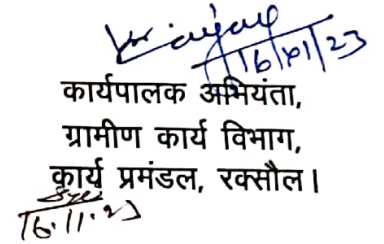 16/11/23
कार्यपालक अभियंता,
ग्रामीण कार्य विभाग,
कार्य प्रमंडल, रक्सौल।
16.11.23